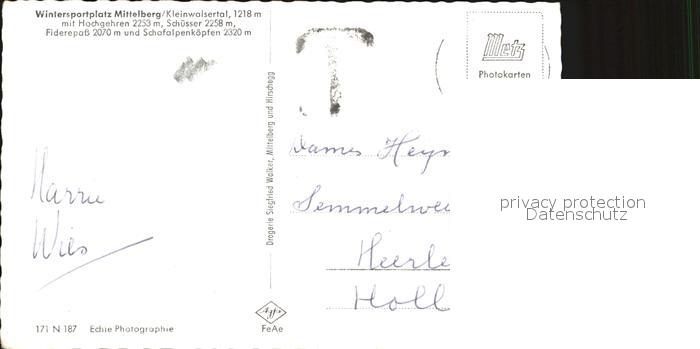 Wintersportplatz Mittelberg/Kleinwalsertal, 1218 m
mit Hochgehren 2253 m, Schüsser 2258 m,
Fiderepaß 2070 m und Schafalpenköpfen 2320 m
T
Metz
Photokarten
Drogerie Siegfried Walker, Mittelberg und Hirschegg
Dames Heyn
Semmelwei
Heerle
Holl
Marrie
Wies
privacy protection
Datenschutz
Agfa
FeAe
171 N 187 Echte Photographie